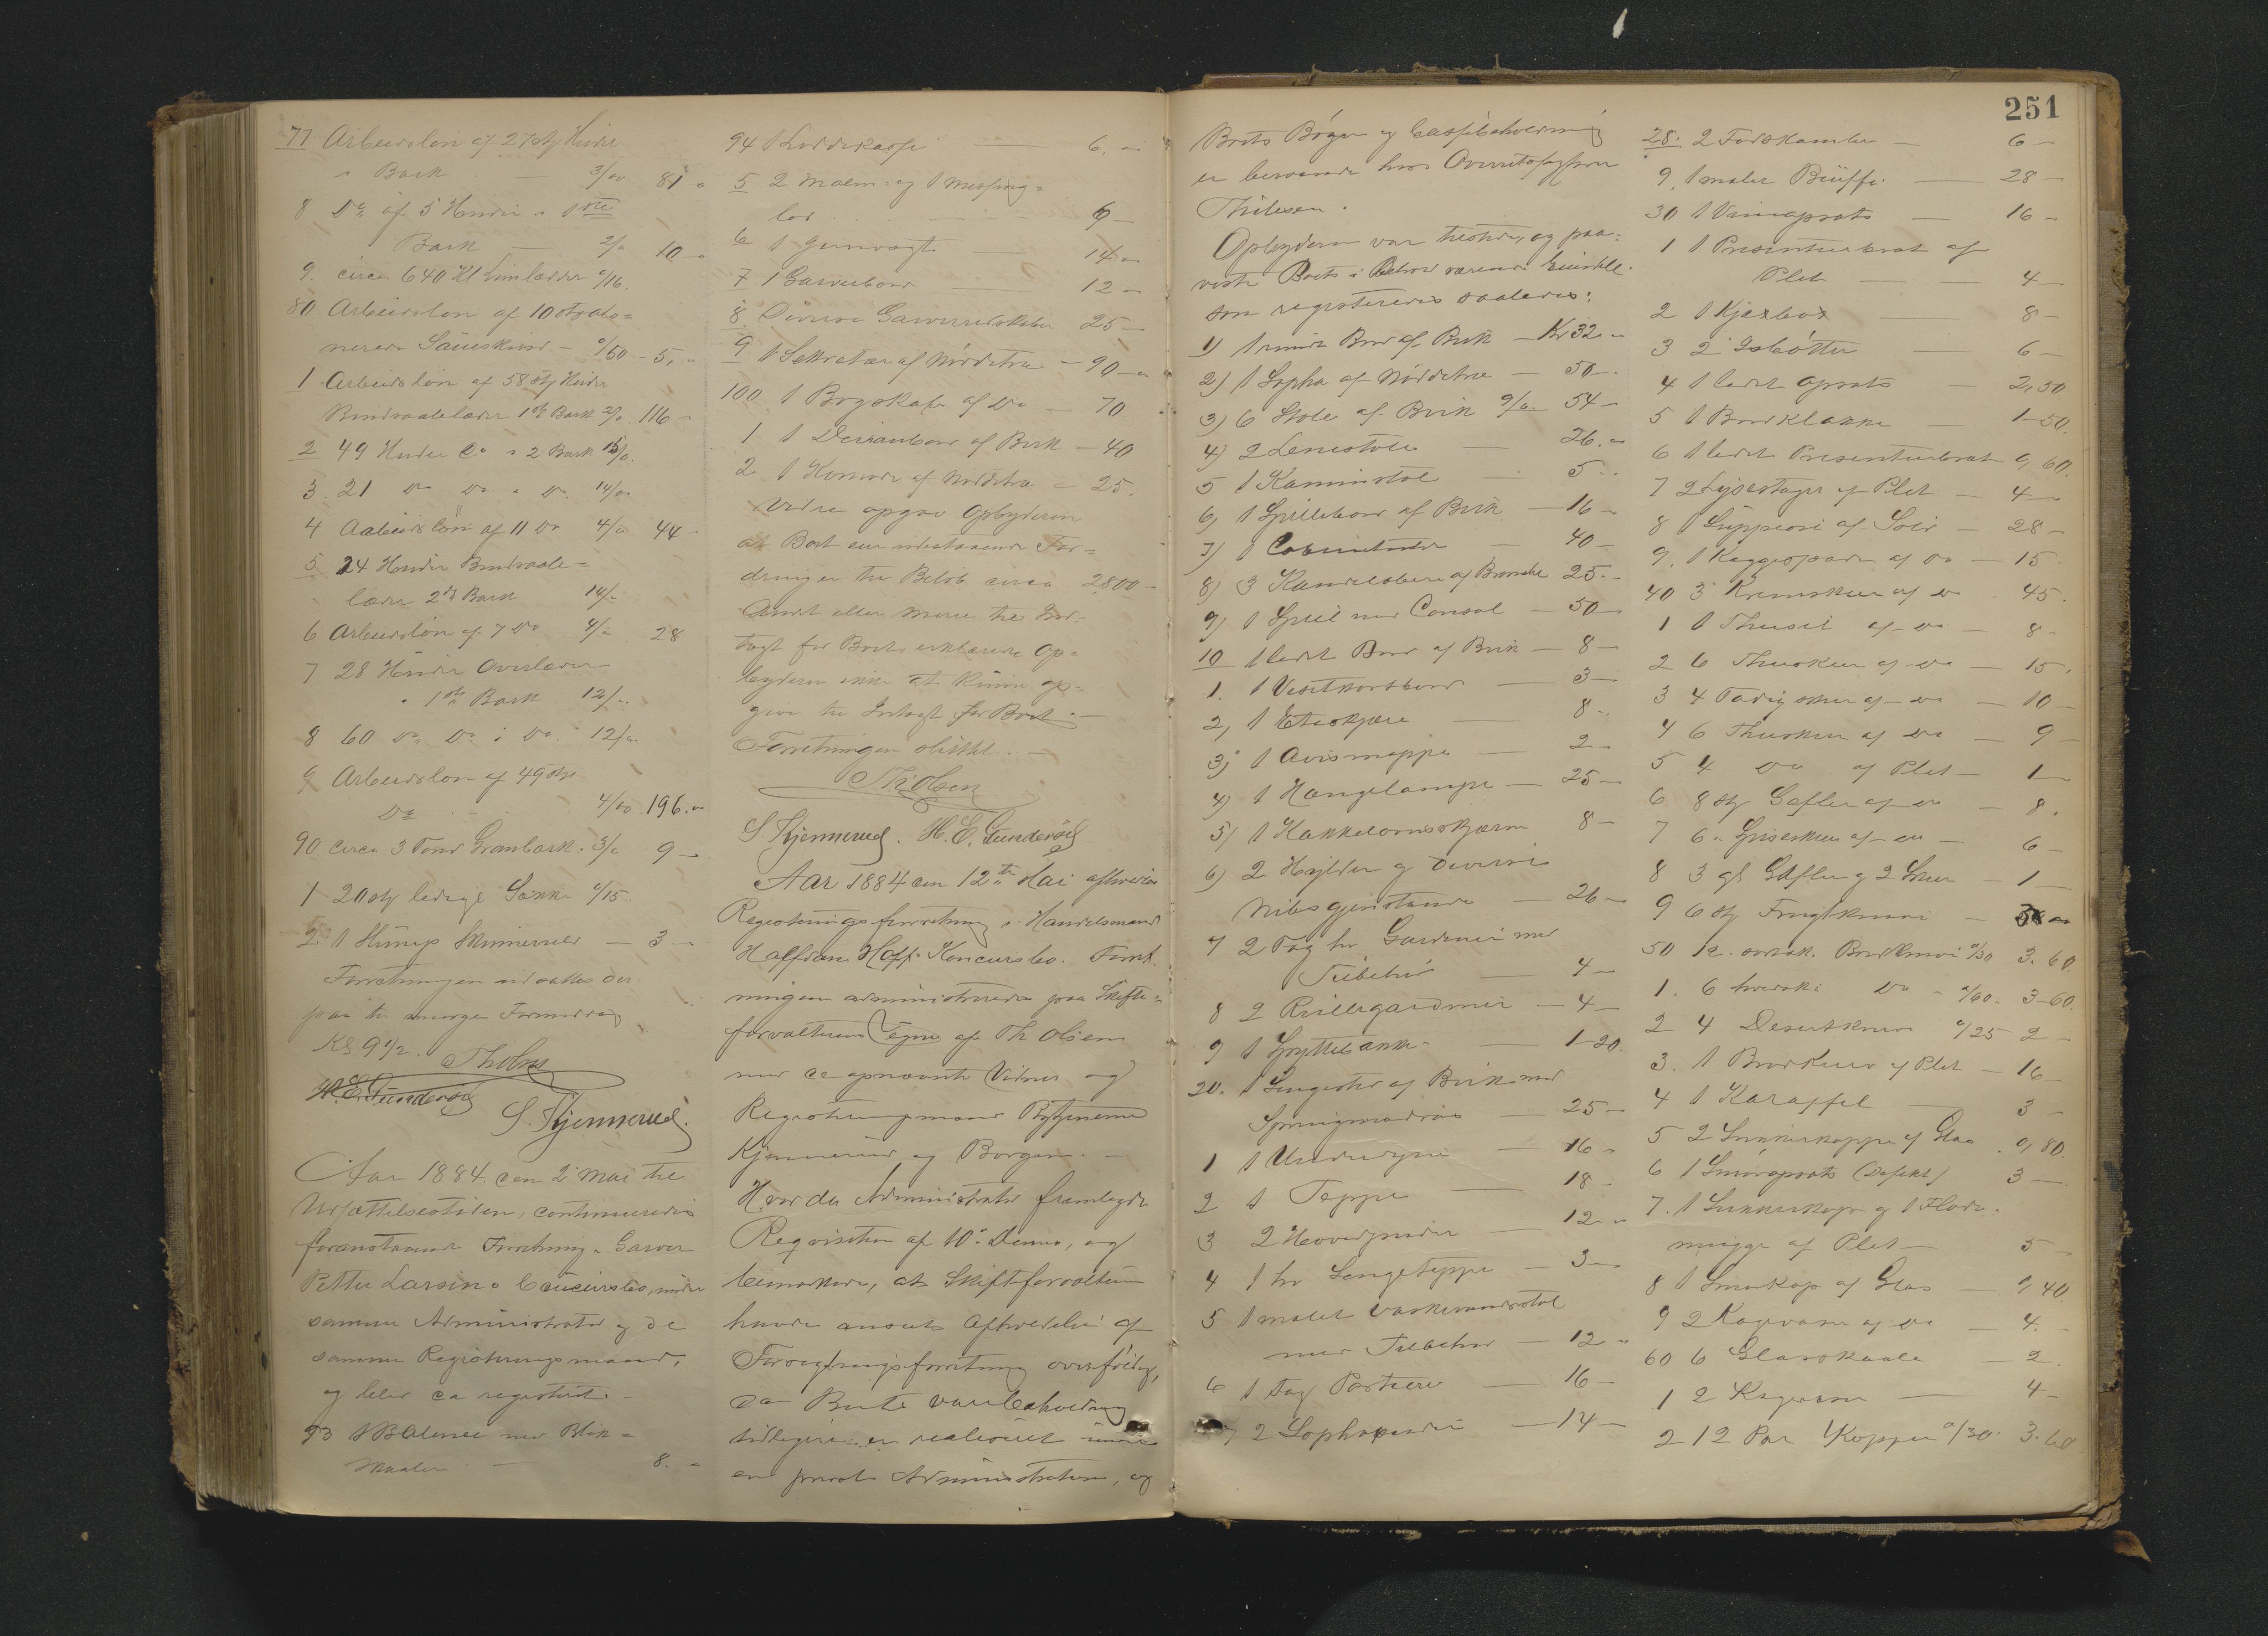 77 Arbeidslön af 27 stk Huder
" Bark — 3/00 81 "
8 Do af 5 Huder " 1ste
Bark — 2/" 10 "
9 circa 640 Kl Limlæder "/16.
80 Arbeidslön af 10 stk
Saueskind — "/50 - 5, "
1 Arbeidslön af 58 stk Huder
Bindsaalelæder 1ste Bark 2/". 116 -
2 49 Huder Do " 2 Bark 15/".
3. 21 Do Do. " Do. 14/"
4 Arbeidslön af 11 Do 4/" 44 -
5 24 Huder Bindsaale=
læder 2den Bark 14/"
6 Arbeidslön af 7 Do 4/" 28
7 28 Huder Overlæder
" 1ste Bark 12/".
8 60 Do Do i Do. 12/"
9 Arbeidslön af 49 Stk
Do — 4/00. 196. "
90 circa 3 Tönd Granbark. 3/" 9 —
1 20 stk ledige Sække "/15.
2 1 — 3 —
Forretningen udsattes der
paa til imorgen Formiddag
Kl 9 1/2. Th Olsen
H. E. Gunderöd
S. Kjennerud.
Aar 1884. den 2 Mai til
Udsættelsestiden, continueredes
foranstaaende Forretning i Garver
Petter Larsens Concursbo, under
samme Administrator og de
samme Registreringsmænd,
og blev da registreret. —
93 1 Balance med Blik=
skaaler — 8. "
94 1 Loddekasse — 6. —
5 2 Malm- og 1 Messing=
lod — 6 —
6 1 — 14 "
7. 1 Garverbord — 12 —
8. Diverse Garverredskaber 25 —
9 1 Sekretær af Nöddetræ — 90 —
100 1 Bogskab af Do — 70
1 1 Divanbord af Birk — 40
2 1 Komode af Nöddetræ — 25.
Videre opgav Opbyderen
at Boet eier udestaaende For=
dringer til Belöb circa 2800 —
Andet eller mere til Ind=
tægt for Boet erklærede Op=
byderen ikke at kunne op=
give til Indtægt for Boet. —
Forretningen sluttet. —
Th Olsen
S. Kjennerud. H. E. Gunderöd
Aar 1884 den 12te Mai afholdtes
Registreringsforretning i Handelsmand
Halfdan Hoffs Koncursbo. Forret=
ningen administreredes paa Skifte=
forvalterens Vegne af Th Olsen
med de opnævnte Vidner og
Registreringsmænd
Kjennerud og Borgen. —
Hvorda Administrator fremlagde
Reqvisition af 10de Dennes, og
bemærkede, at Skifteforvalteren
havde anseet Afholdelse af
Forseglingsforretning overflödig,
da Boets Varebeholdning
tidligere er realiseret under
en privat Administration, og
251
Boets Böger og Cassebeholdning
er beroende hos Overretssagförer
Thilesen.
Opbyderen var tilstede, og paa=
viste Boets i Behold værende Eiendele.
som registreredes saaledes:
1) 1 rundt Bord af Birk — Kr 32 "
2) 1 Sopha af Nöddetræ — 50 -
3) 6 Stole af Birk 9/". 54 —
4) 2 Lenestole — 26. "
5 1 Kaminstol — 5 ..
6) 1 Spillebord af Birk — 16 —
7) 1 — 40 —
8) 3 Kandelabere af Bronche 25. -
9) 1 Speil med Consol — 50 —
10 1 lidet Bord af Birk — 8 —
1. 1 Visitkortbord — 3 —
2) 1 — 8 ..
3) 1 Avismappe — 2 -
4) 1 Hængelampe — 25 —
5) 1 Kakkelovnsskjærm 8 —
6) 2 Hylder og diverse
Nibsgjenstande — 26 —
7 2 Fag hv Gardiner med
Tilbehör — 4 —
8 2 Rullegardiner — 4 —
9 1 Spyttebakke — 1-20.
20. 1 Sengested af Birk med
Springmadras — 25 —
1 1 Underdyne — 16 "
2 1 Teppe — 18 —
3 2 Hovedpuder — 12 "
4 1 hv Sengeteppe — 3 —
5 1 malet Vaskevandsstol
med Tilbehör — 12 "
6 1 Fag Portierer — 16 —
7 2 Sophapuder — 14 —
28. 2 — 6 —
9. 1 malet Büffe — 28 —
30 1 — 16 —
1 1 Presenteerbret af
Plet — 4 —
2 1 — 8 -
3 2 Isbötter — 6 —
4 1 lidet Opsats — 2,50.
5 1 Bordklokke — 1-50.
6 1 lidet Presenteerbrat 0, 60.
7 2 Lysestager af Plet — 4 —
8 1 Suppeöse af Sölv — 28 —
9. 1 Kaggespade af Do — 15.
40 3 af Do . 45.
1 1 Theesil af Do — 8 -
2 6 Theskeer af Do — 15,
3 4 af Do — 10 —
4 6 Theskeer af Do — 9 —
5 4 Do af Plet — 1 —
6 8 stk Gafler af Do — 8.
7 6 " Spiseskeer af Do — 6 —
8 3 gl Gafler og 2 Skeer — 1 —
9 6 stk Frugtknive — 3 "
50 12. Bordknive "/30 3. 60.
1. 6 Do - "/60. 3-60.
2 4 Desertknive "/25 2 —
3. 1 Brödkurv af Plet — 16 —
4 1 Karaffel — 3 —
5 2 Sukkerkopper af Glas . 0, 80.
6 1 Smöropsats (Defekt) 3 —
7. 1 Sukkerkop og 1 Flöde-
mugge af Plet — 5 —
8 1 Smörkop af Glas — 0, 40.
9 2 Kagevaser af Do — 4. -
60 6 Glasskaale — 2.
1 2 Kagevaser — 4 —
2 12 Par Kopper "/30. 3. 60